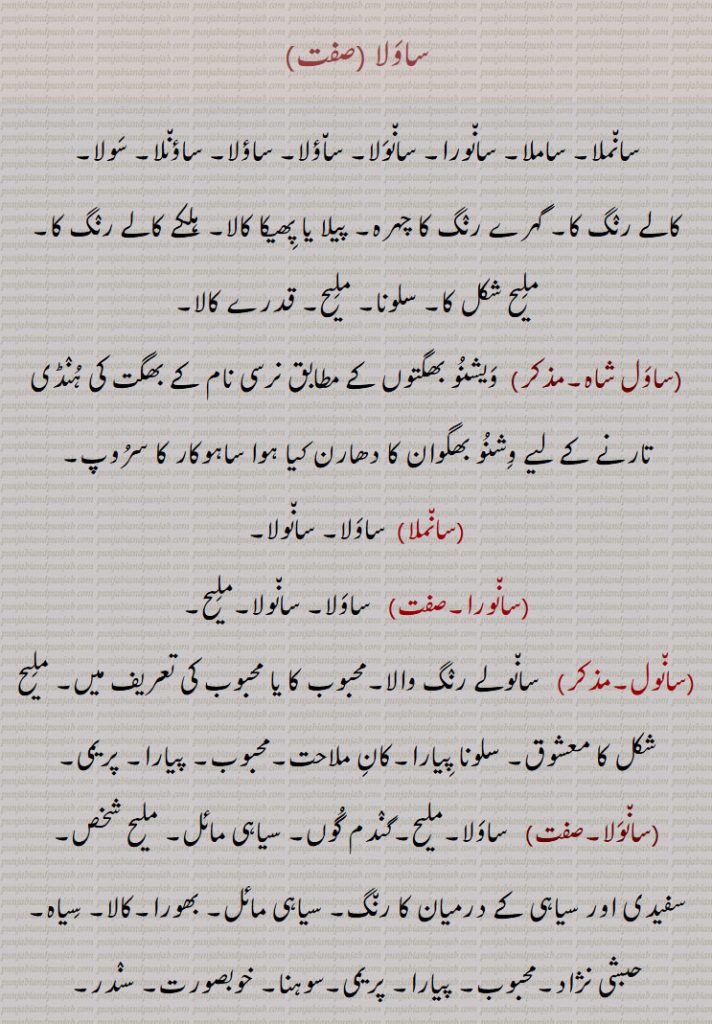 ساوَلا (صفت)
سانْملا۔ ساملا۔ سانْورا۔ سانْوَلا۔ سأؤلا۔ ساؤلا۔ ساؤنْلا۔ سَولا۔
کالے رنگ کا۔ گہرے رنگ کا چہرہ۔ پیلا یا پِھیکا کالا۔ ہلکے کالے رنگ کا۔
ملِیح شکل کا۔ سلونا۔ ملِیح۔ قدرے کالا۔
(ساوَل شاہ۔مذکر) وَیشنُو بھگتوں کے مطابق نرسی نام کے بھگت کی ہُنْڈی
تارنے کے لیے وِشنُو بھگوان کا دھارن کیا ہوا ساہوکار کا سرُوپ۔
(سانْملا) ساوَلا۔ سانْولا۔
(سانْورا۔صفت) ساوَلا۔ سانْولا۔ملِیح۔
(سانْول۔مذکر) سانْولے رنگ والا۔محبوب کا یا محبوب کی تعریف میں۔ ملِیح
شکل کا معشوق۔ سلونا پِیارا۔کانِ ملاحت۔محبوب۔ پیارا۔ پریمی۔
(سانْوَلا۔صفت) ساوَلا۔ملیح۔گندم گُوں۔ سیاہی مائل۔ ملیح شخص۔
سفیدی اور سیاہی کے درمیان کا رنگ۔ سیاہی مائل۔ بھورا۔کالا۔ سِیاہ۔
حبشی نژاد۔محبوب۔ پیارا۔ پریمی۔سوہنا۔ خوبصورت۔ سندر۔